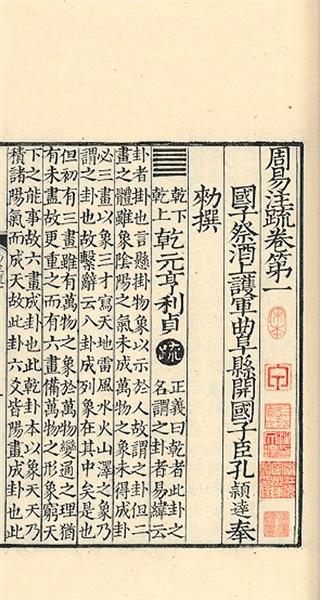 周易注疏卷第一
國子祭酒上護軍曲阜縣開國子臣孔穎達奉
勑撰
乾下
乾上
乾元亨利貞
疏
正義曰乾者此卦之
名謂之卦者易緯云
卦者掛也言懸掛物象以示於人故謂之卦但二
畫之體雖象陰陽之氣未成萬物之象未得成卦
必三畫以象三才寫天地雷風水火山澤之象乃
謂之卦也故繫辭云八卦成列象在其中矣是也
但初有三畫雖有萬物之象於萬物變通之理猶
有未盡故更重之而有六畫備萬物之形象窮天
下之能事故六畫成卦也此乾卦本以象天天乃
積諸陽氣而成天故此卦六爻皆陽畫成卦也此